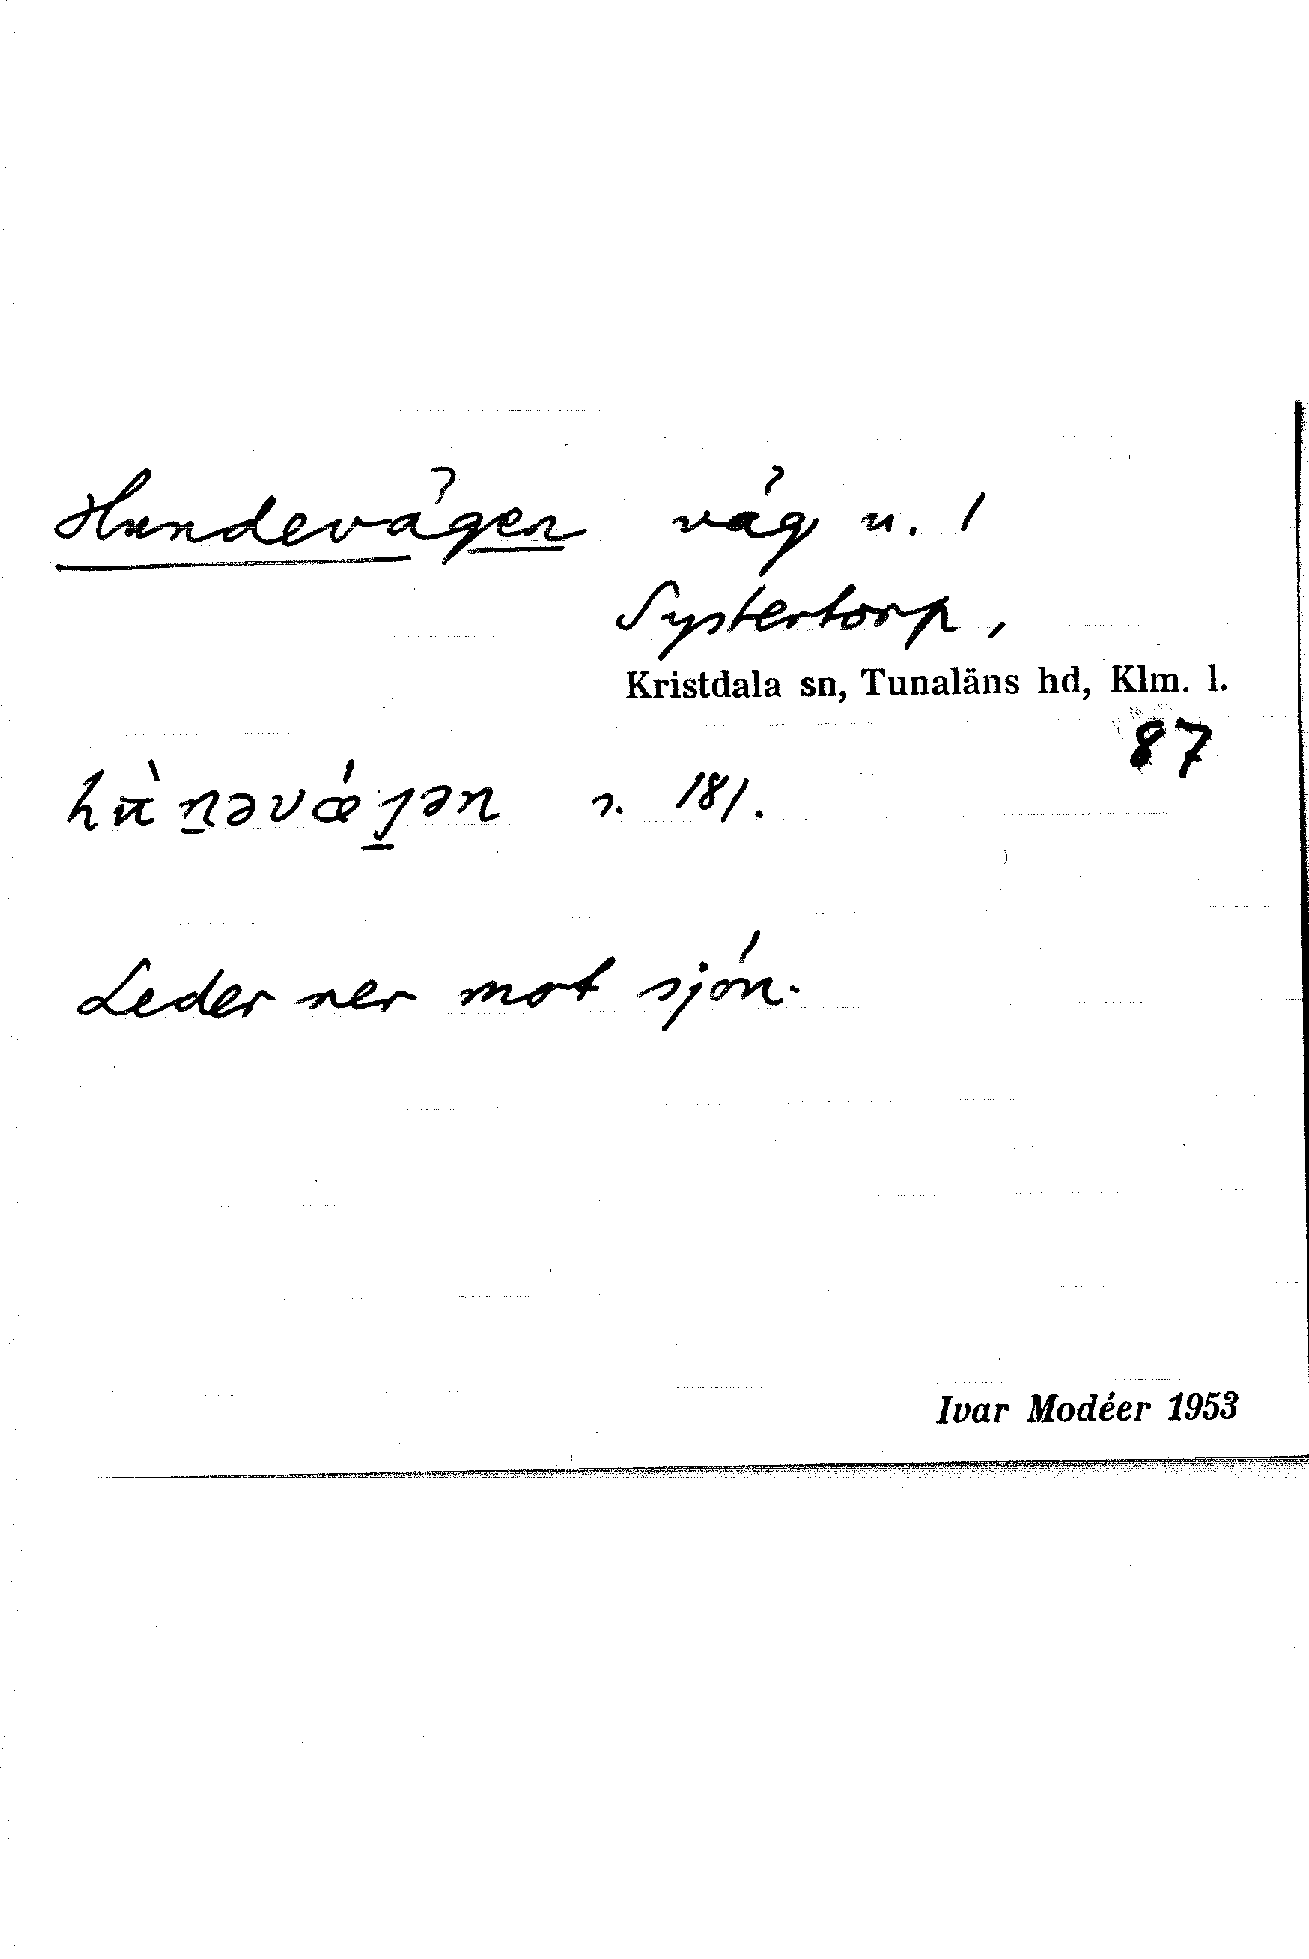 Hundevägen väg u. /
Systertorp,
Kristdala sn, Tunaläns hd, Klm. l.
87
s. 181.
Leder ner mot sjön.
Ivar Modéer 1953